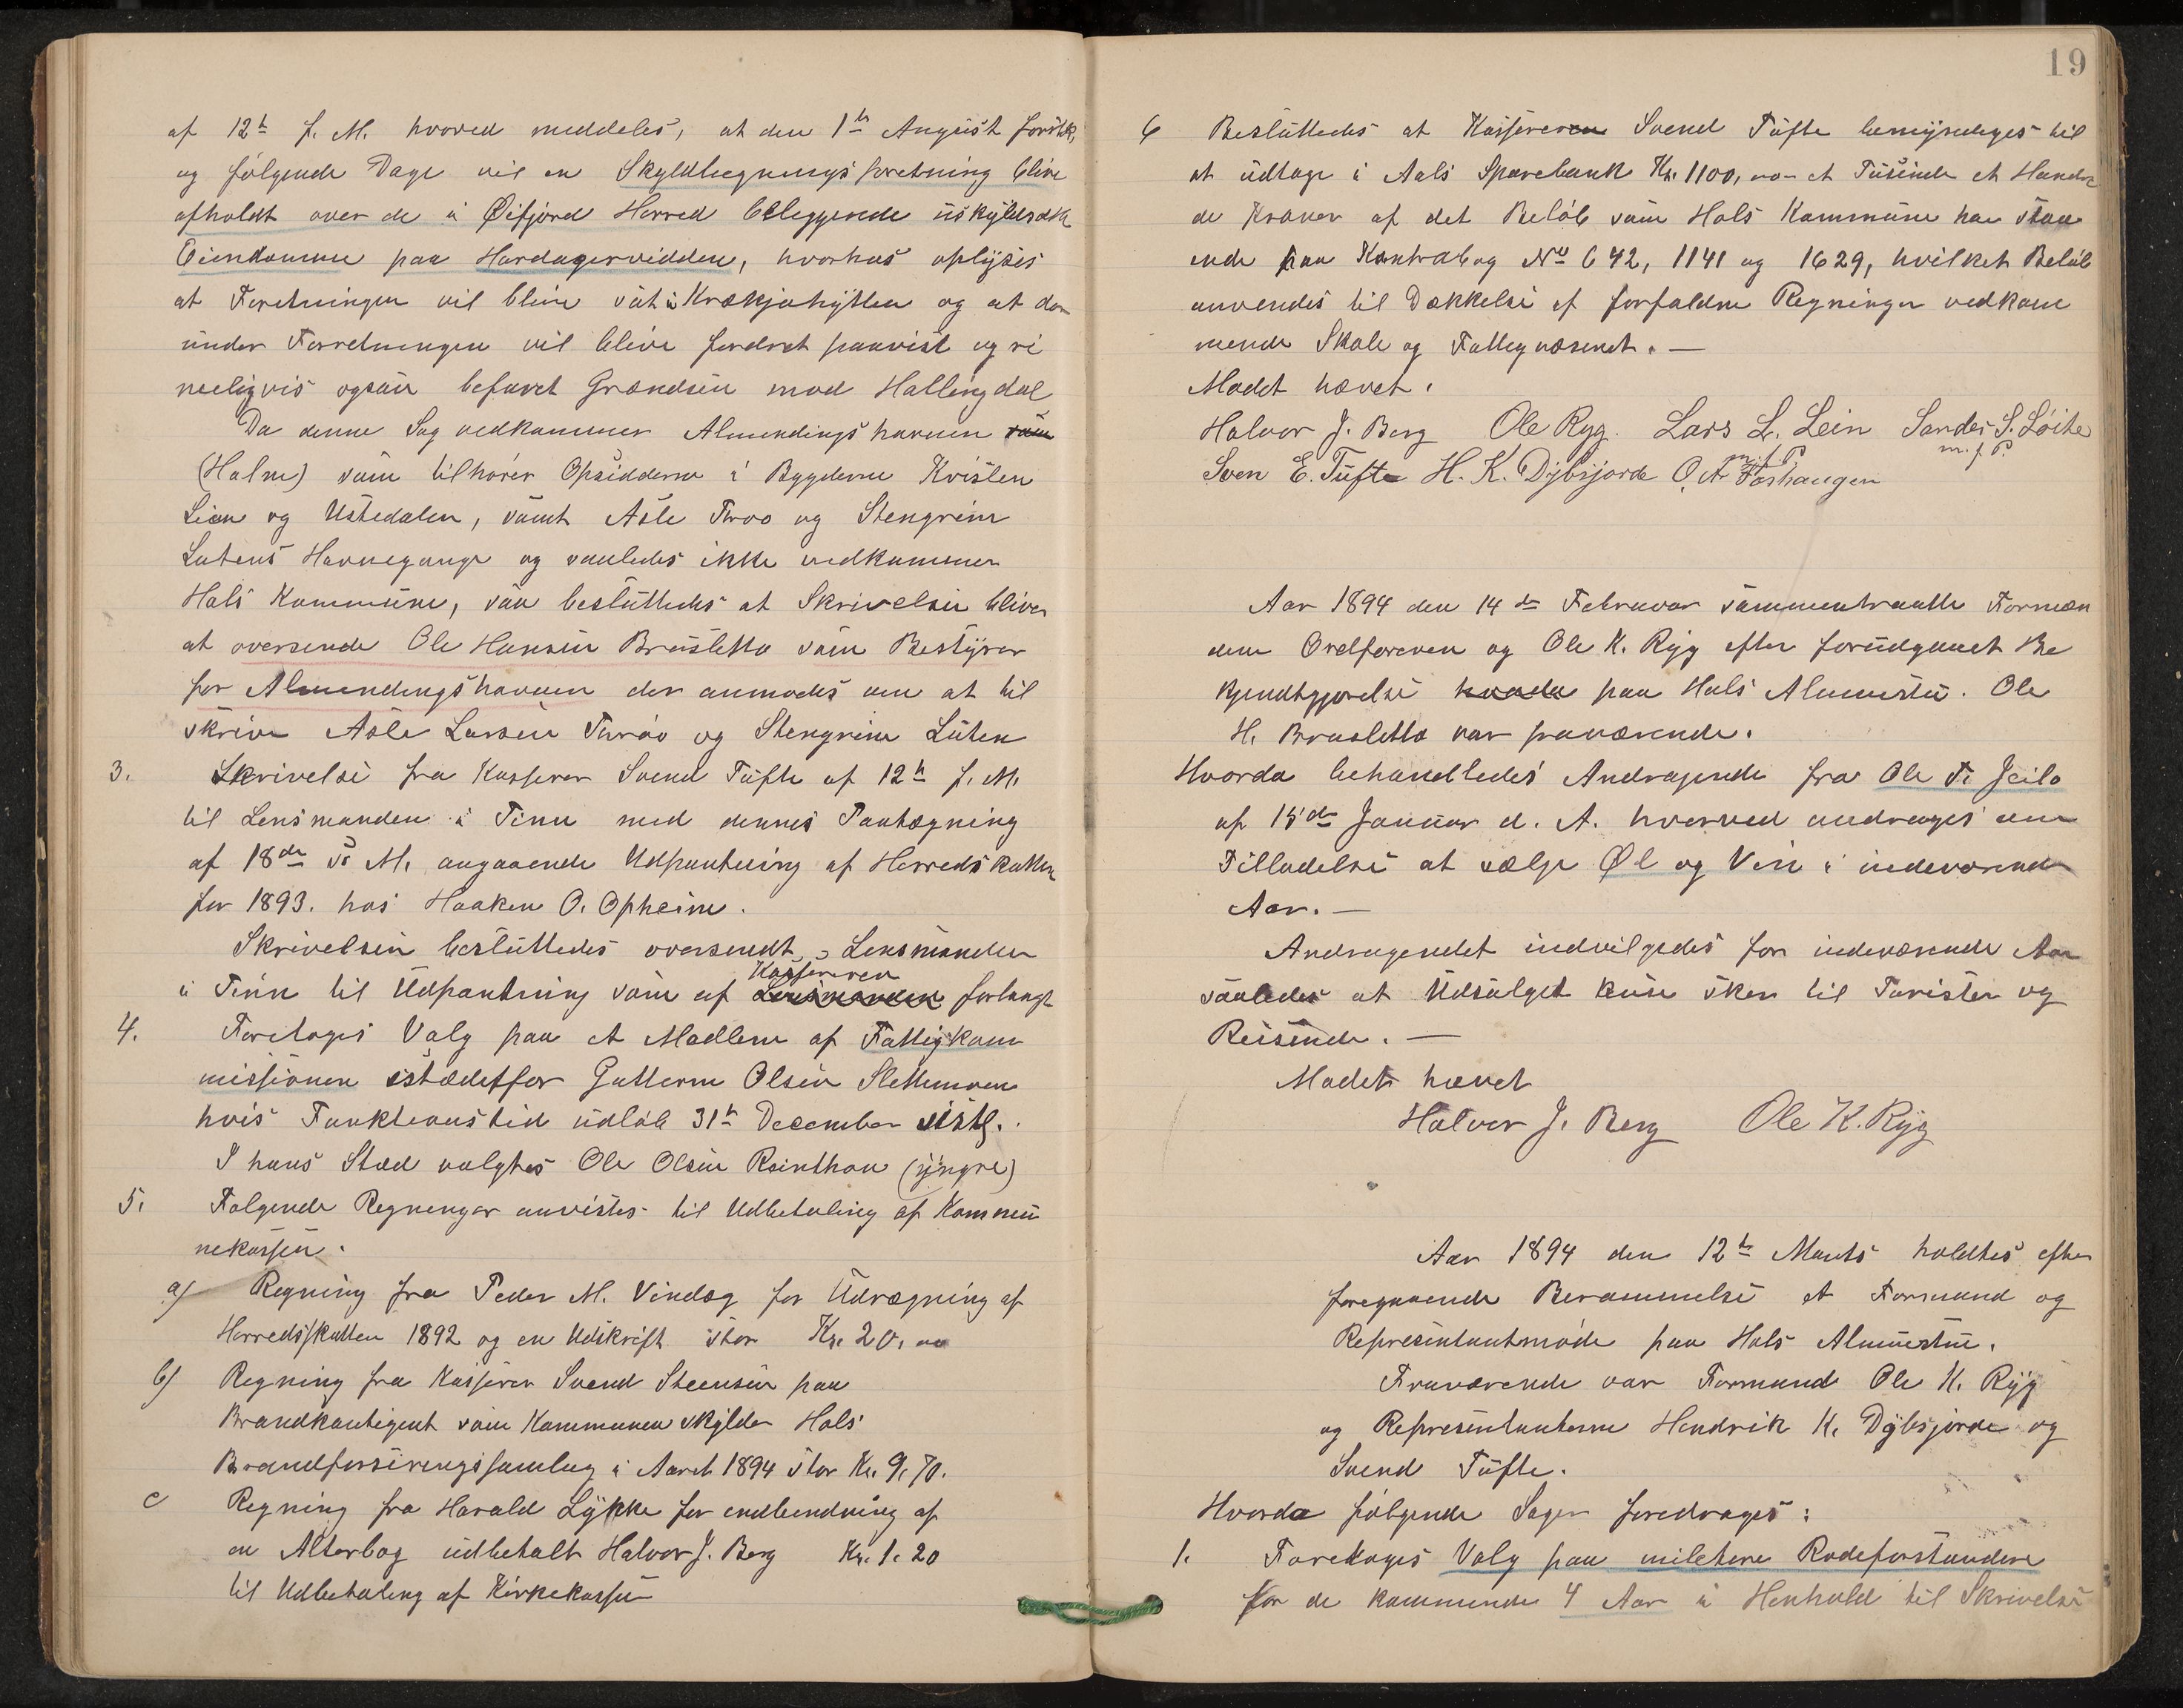 af 12te f. M. hvorved meddeles, at den 1ste August førstk.
og følgende Dage vil en Skyldlægningsforretning blive
afholdt over de i Øifjord Herred beliggende uskyldsatte
Eiendomme paa Hardangervidden, hvorhos oplyses
at Forretningen vil blive sat i Krækjahytten og at der
under Forretningen vil blive fordret paavist og ri
meligvis ogsaa befaret Grændsen mod Hallingdal
Da denne Sag vedkommer Almendingshavnen som
(Halne) som tilhører Opsidderne i Bygderne Kvisten
Lien og Ustedalen, samt Asle Throo og Stengrim
Lutens Havnegange og saaledes ikke vedkommer
Hols Kommune, saa besluttedes at Skrivelsen bliver
at oversende Ole Hansen Brusletto som Bestyrer
for Almendingshavnen der anmodes om at til
skrive Asle Larsen Thrøo og Stengrim Luten
3. Skrivelse fra Kasserer Svend Tufte af 12te f. M.
til Lensmanden i Tinn med dennes Paategning
af 18de s. M. angaaende Udpantning af Herredskatten
for 1893. hos Haaken O. Opheim.
Skrivelsen besluttedes oversendt Lensmanden
Kassereren
i Tinn til Udpantning som af Lensmanden forlangt
4. Foretoges Valg paa et Medlem af Fattigkom
missionen istædetfor Guttorm Olsen Slettemoen
hvis Funktionstid udløb 31te December sistl.
I hans Sted valgtes Ole Olsen Reinthon (yngre)
5. Følgende Regninger anvistes til Udbetaling af Kommu
nekassen.
a) Regning fra Peder M. Vindeg for Udregning af
Herredsskatten 1892 og en Udskrift stor Kr. 20.00
b) Regning fra Kasserer Svend Steensen paa
Brandkontigent som Kommunen skylder Hols
Brandforsikringssamlag i Aaret 1894 stor Kr. 9.70.
c Regning fra Harald Lykke for indbindning af
en Alterbog udbetalt Halvor J. Berg Kr. 1.20
til Udbetaling af Kirkekassen
19
6 Besluttedes at Kassereren Svend Tufte bemyndiges til
at udtage i Aals Sparebank Kr. 1100,00 et Tusinde et Hundre
de Kroner af det Beløb som Hols Kommune har staa
ende paa Kontrabog No 642, 1141 og 1629, hvilket Beløb
anvendes til Dækkelse af forfaldne Regninger vedkom
mende Skole og Fattigvæsenet. —
Mødet hævet.
Halvor J. Berg Ole Ryg. Lars L. Lein Sander S. Løite
m. f. P. m. f. P.
Sven E. Tufte H. K. Dybsjorde O. A. Foshaugen
Aar 1894 den 14de Februar sammentraadte Formæn
dene Ordføreren og Ole K. Ryg efter forudgaaet Be
kjendtgjørelse hvorda paa Hols Almuestu. Ole
H. Brusletto var fraværende.
Hvorda behandledes Andragende fra Ole T. Jeilo
af 15de Januar d. A. hvorved andrages om
Tilladelse at sælge Øl og Vin i indeværende
Aar. —
Andragendet indvilgedes for indeværende Aar
saaledes at Udsalget kun sker til Turister og
Reisende. —
Mødet hævet
Halvor J. Berg Ole K. Ryg
Aar 1894 den 12te Marts holdtes efter
foregaaende Berammelse et Formand og
Representantmøde paa Hols Almuestu.
Fraværende var Formand Ole K. Ryg
og Representanterne Hendrik K. Dybsjorde og
Svend Tufte.
Hvorda følgende Sager foredroges:
1. Foretoges Valg paa militere Rodeforstandere
for de kommende 4 Aar i Henhold til Skrivelse